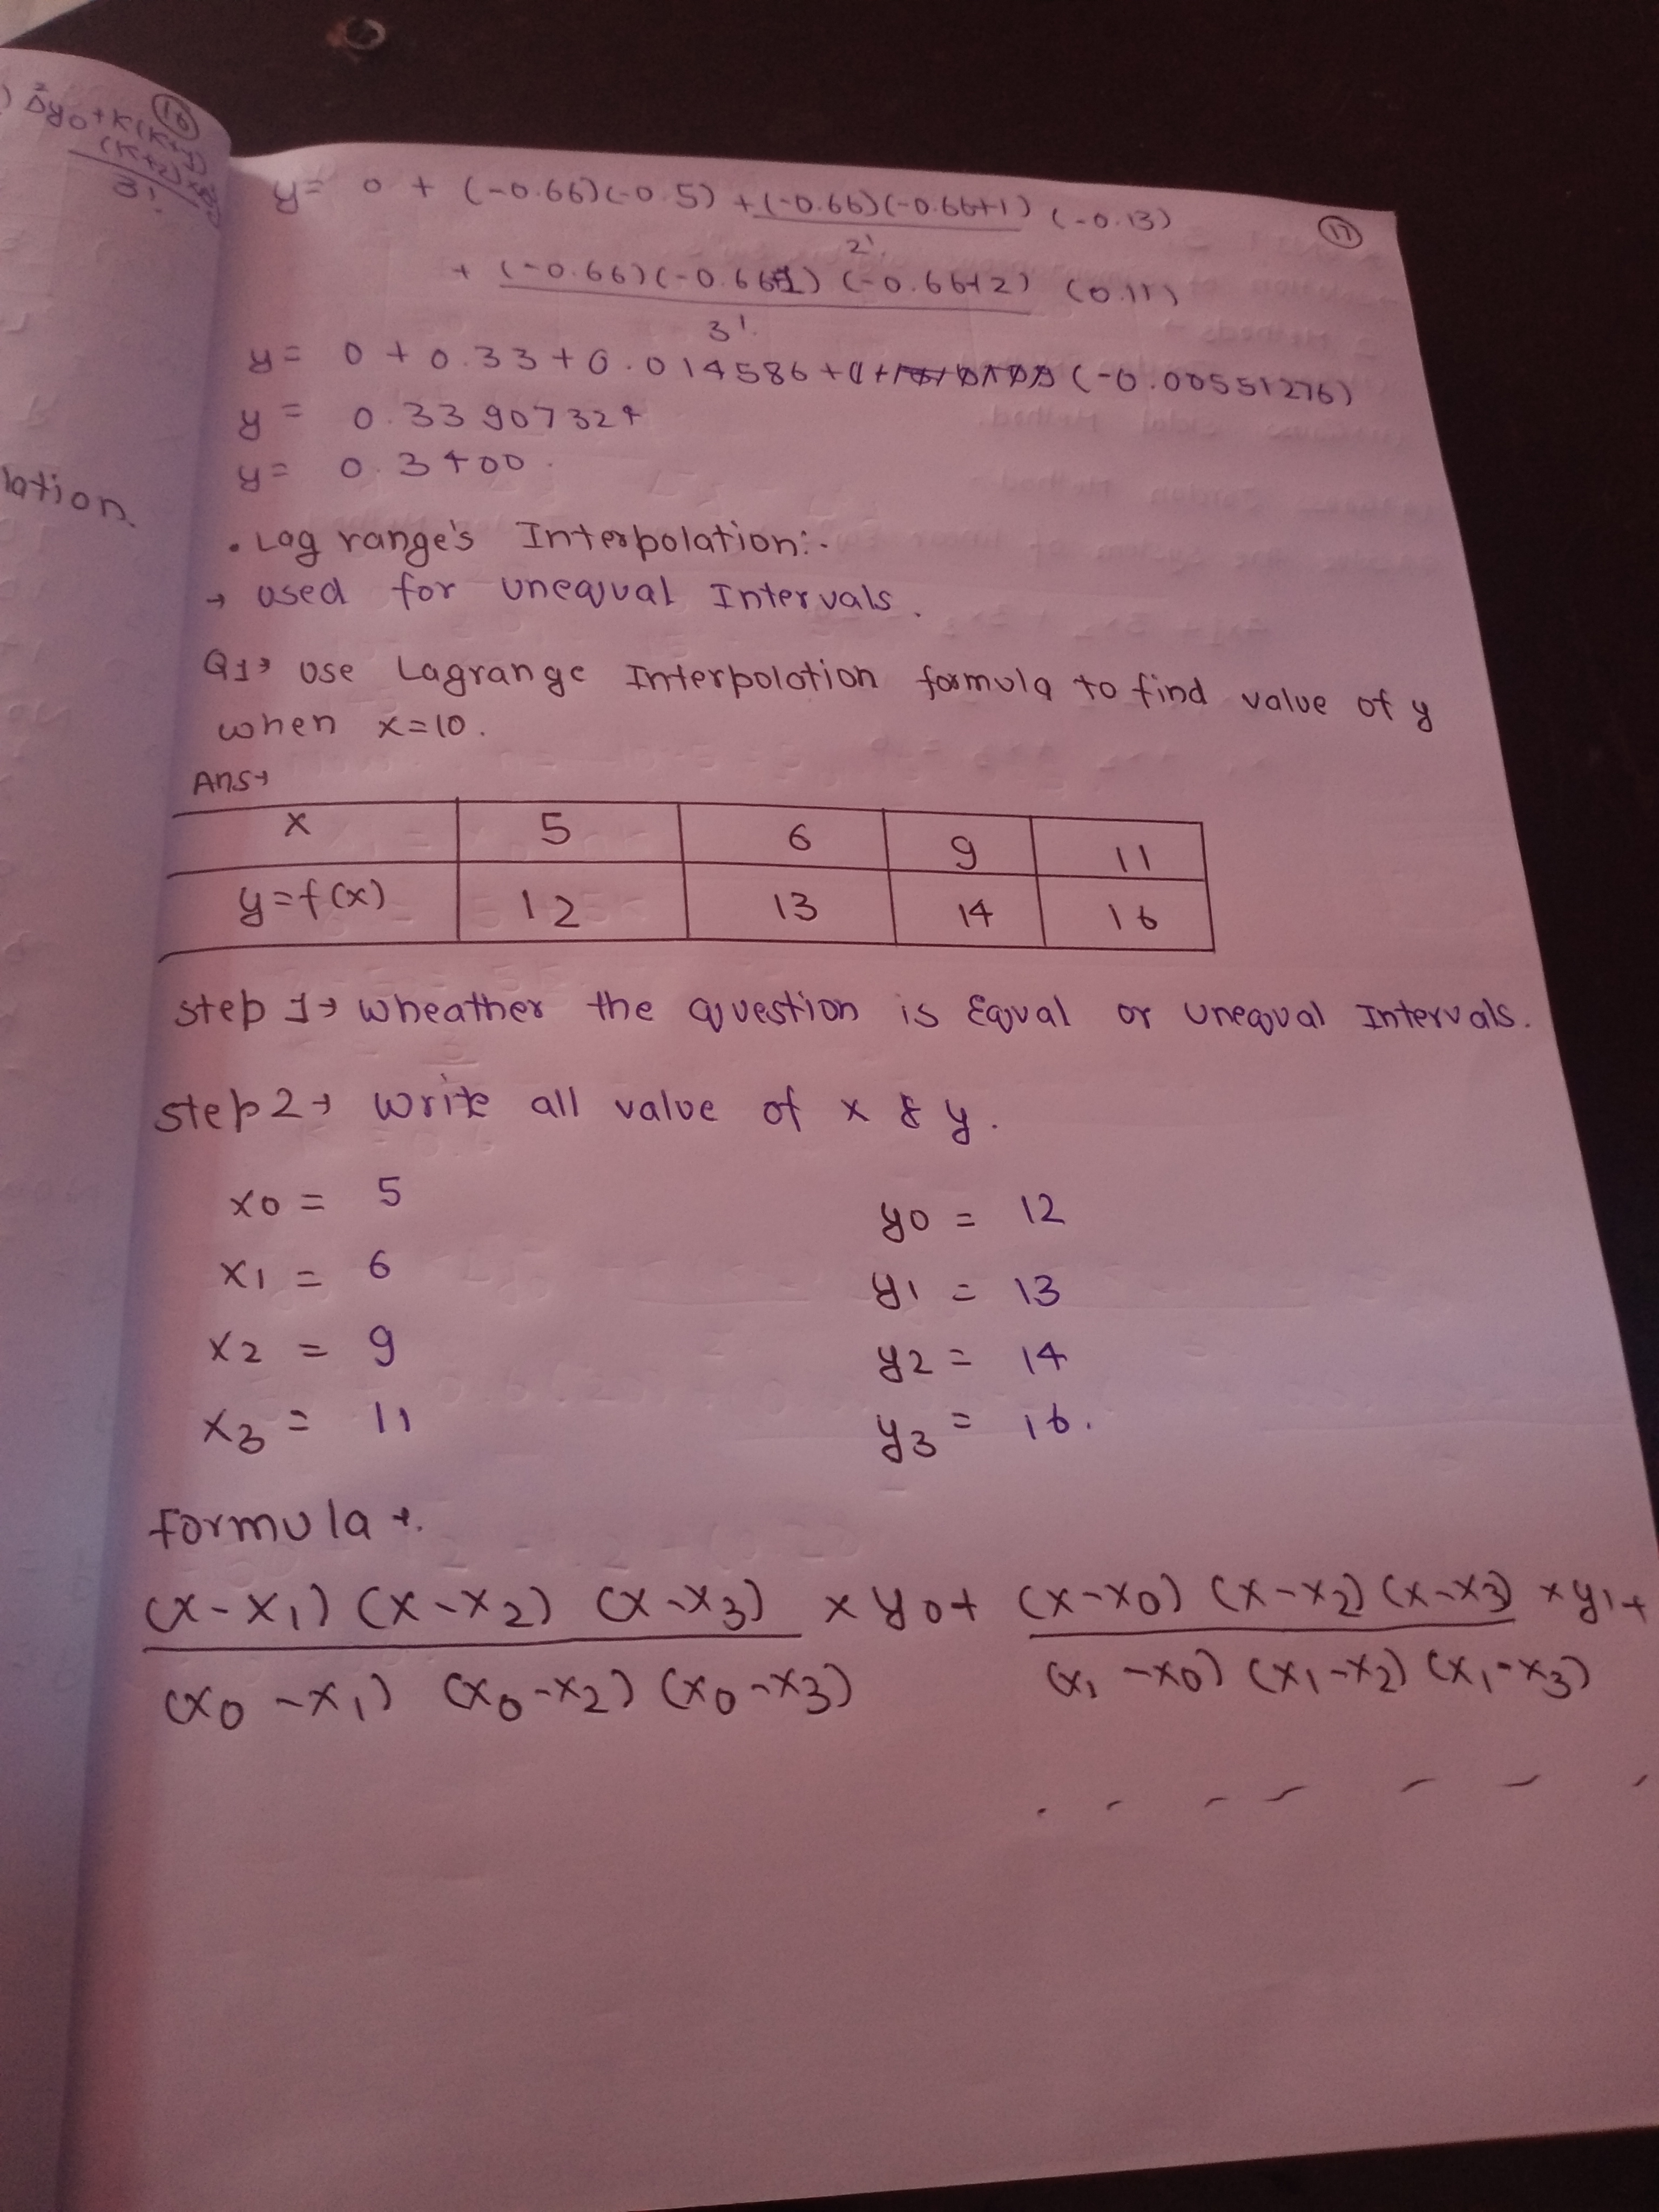 ) Δ²y0 + K(K+1)
(K+2)
3!
16
lation.
17
y = 0 + (-0.66)(-0.5) + (-0.66)(-0.66+1) (-0.13)
2!
+ (-0.66)(-0.66+1) (-0.66+2) (0.11)
3!
y = 0 + 0.33 + 0.014586 + (-0.00551276)
y = 0.33907324
y = 0.3400.
. Lagrange's Interpolation:-
→ used for unequal Intervals.
Q1→ Use Lagrange Interpolation formula to find value of y
when x=10.
Ans→
x 5 6 9 11
y=f(x) 12 13 14 16
Step 1→ Wheather the question is Equal or unequal Intervals.
Step 2→ Write all value of x & y.
x0 = 5 y0 = 12
x1 = 6 y1 = 13
x2 = 9 y2 = 14
x3 = 11 y3 = 16.
Formula →.
(x-x1) (x-x2) (x-x3) × y0 + (x-x0) (x-x2) (x-x3) × y1 +
(x0-x1) (x0-x2) (x0-x3) (x1-x0) (x1-x2) (x1-x3)
. - - - - - -